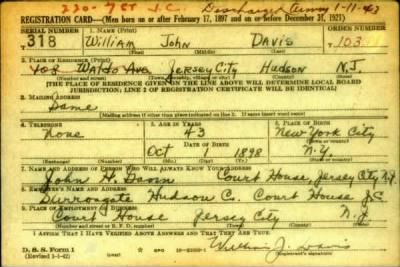 220-7 St J.C. Discharged Army 1-11-43
REGISTRATION CARD—(Men born on or after February 17, 1897 and on or before December 31, 1921)
SERIAL NUMBER 1. NAME (Print) ORDER NUMBER
318 William John Davis 103
(First) (Middle) (Last)
2. PLACE OF RESIDENCE (Print)
408 Waldo Ave Jersey City Hudson N.J.
(Number and street) (Town, township, village, or city) (County) (State)
[THE PLACE OF RESIDENCE GIVEN ON THE LINE ABOVE WILL DETERMINE LOCAL BOARD
JURISDICTION; LINE 2 OF REGISTRATION CERTIFICATE WILL BE IDENTICAL]
3. MAILING ADDRESS
Same
[Mailing address if other than place indicated on line 2. If same insert word same]
4. TELEPHONE 5. AGE IN YEARS 6. PLACE OF BIRTH
None 43 New York City
DATE OF BIRTH (Town or county)
Oct 1 1898 N.Y.
(Exchange) (Number) (Mo.) (Day) (Yr.) (State or country)
7. NAME AND ADDRESS OF PERSON WHO WILL ALWAYS KNOW YOUR ADDRESS
John H. Court House, Jersey City N.J.
8. EMPLOYER'S NAME AND ADDRESS
Surrogate Hudson Co. Court House J.C
9. PLACE OF EMPLOYMENT OR BUSINESS
Court House Jersey City N.J.
(Number and street or R. F. D. number) (Town) (County) (State)
I AFFIRM THAT I HAVE VERIFIED ABOVE ANSWERS AND THAT THEY ARE TRUE.
D. S. S. Form 1
(Revised 1-1-42) William J. Davis
(Registrant's signature)